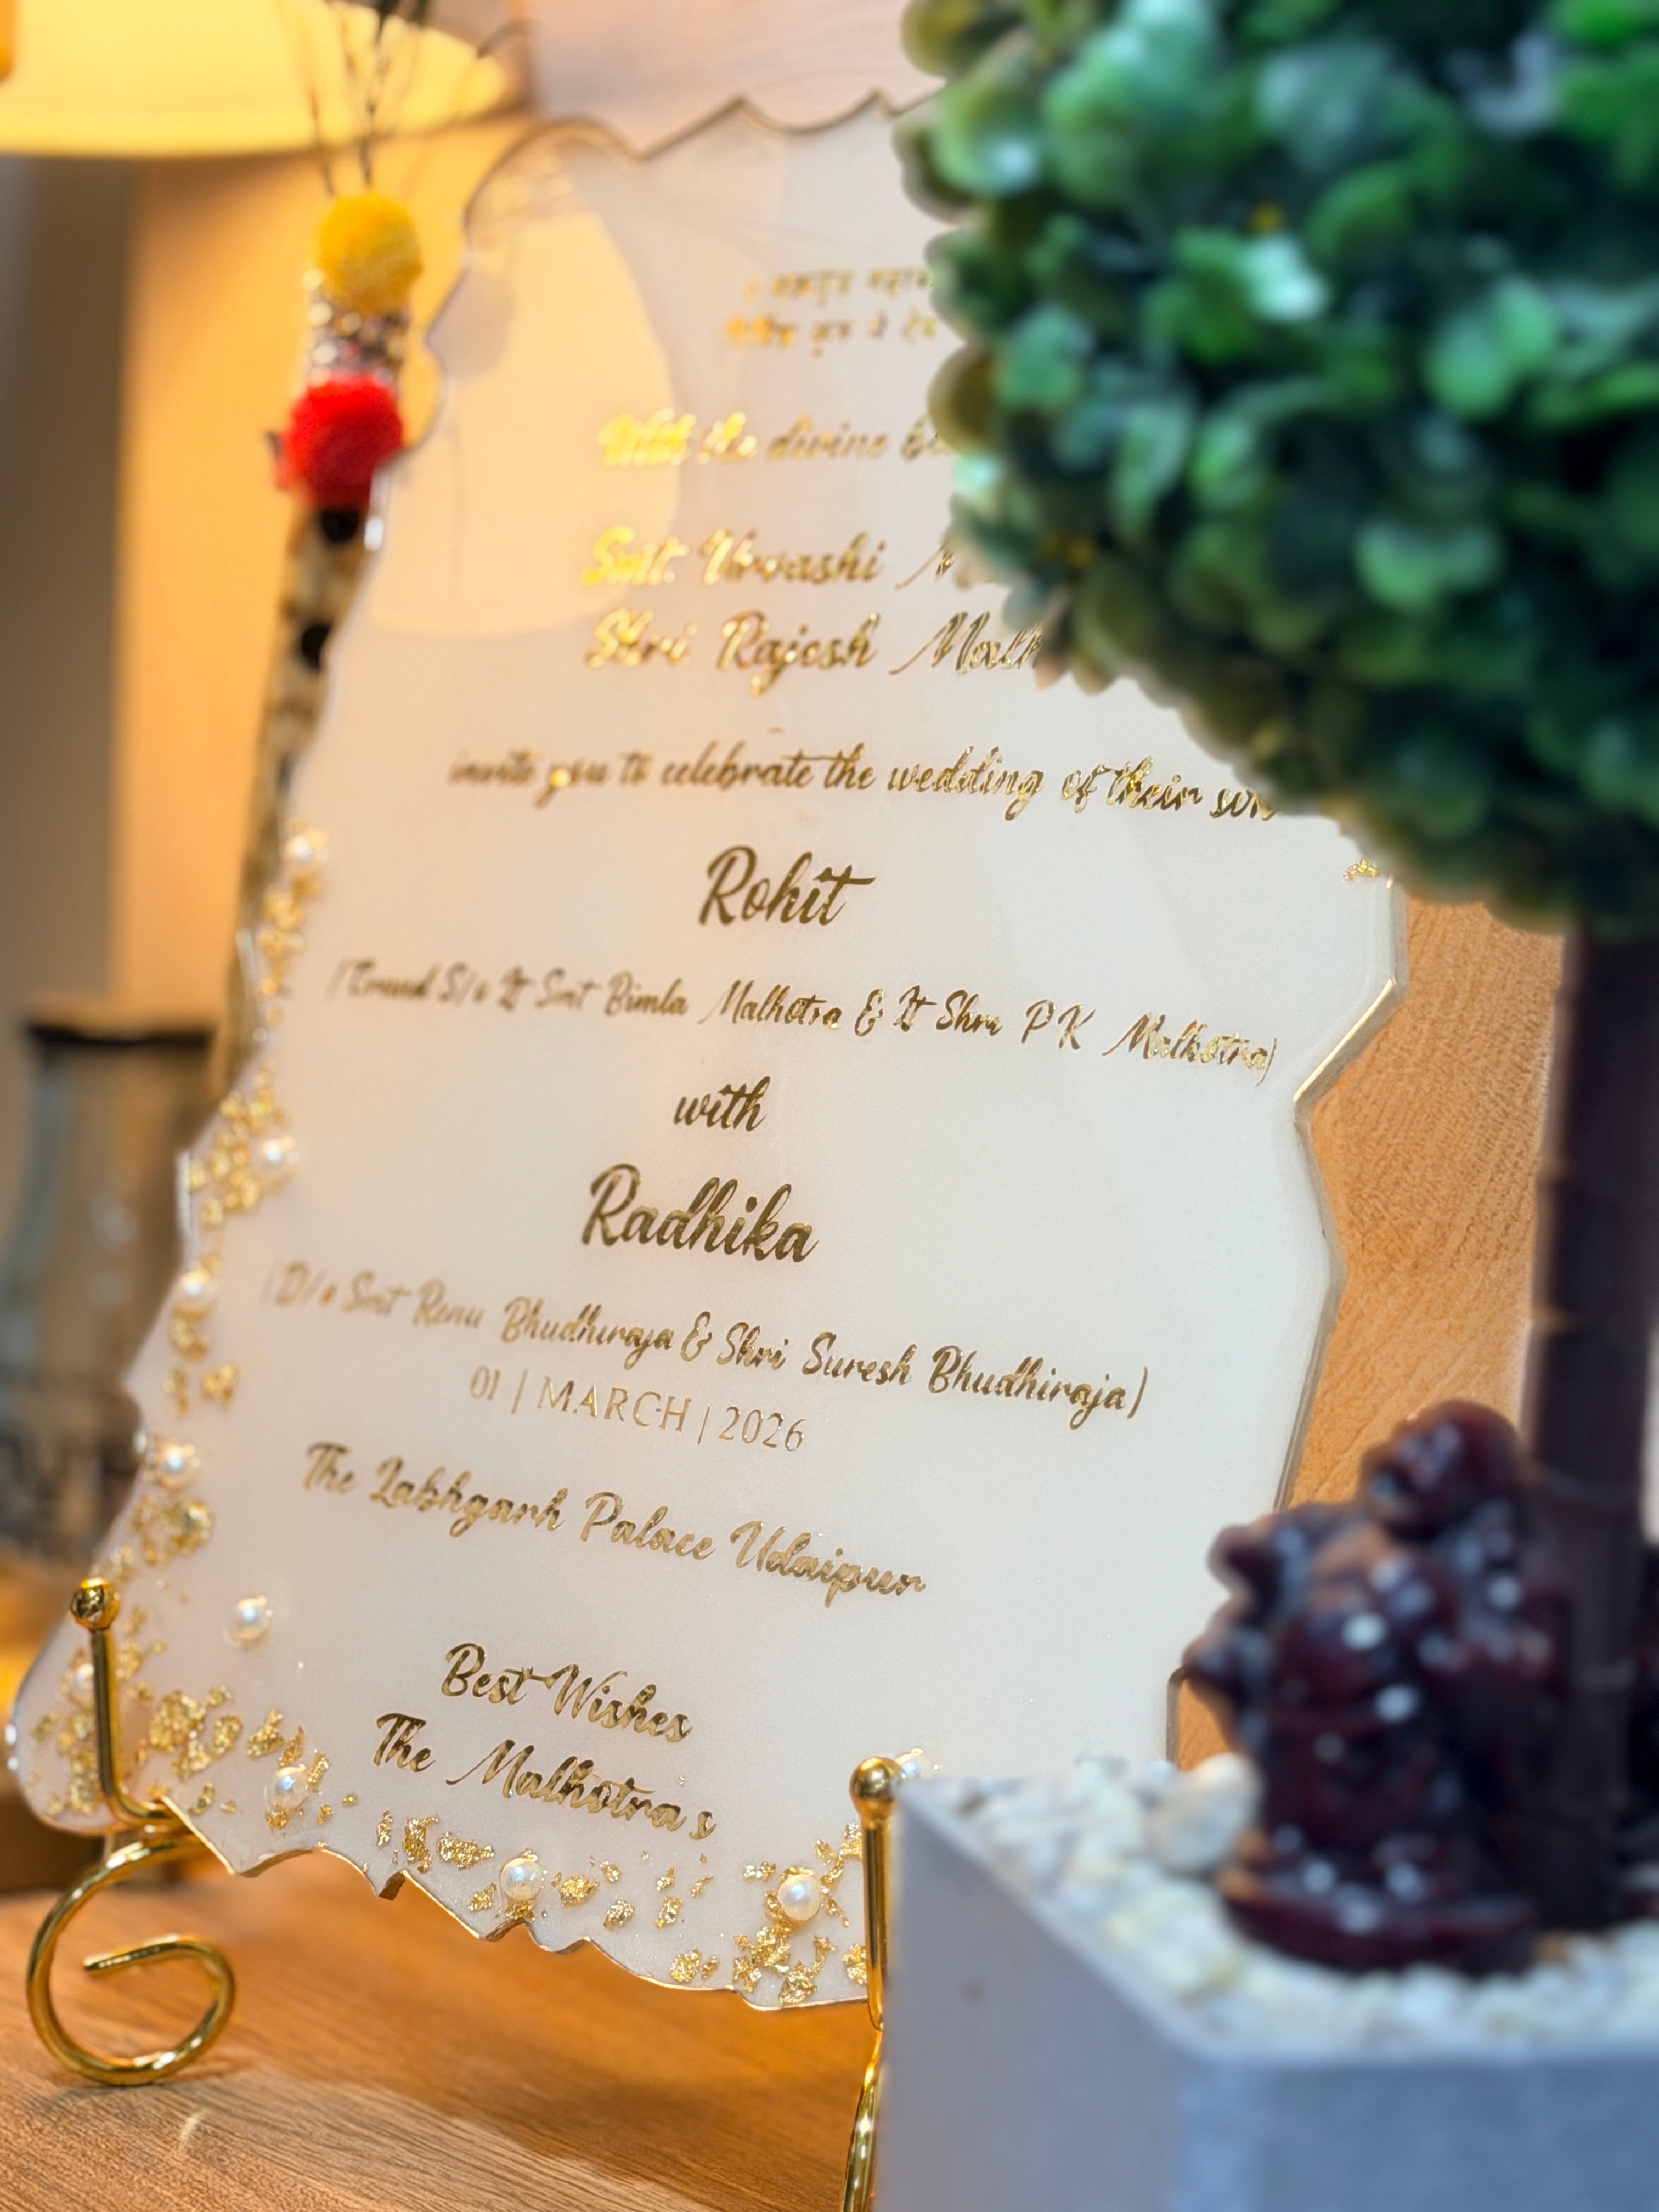 With the divine
Smt. Urvashi
Shri Rajesh Malh
invite you to celebrate the wedding of their son
Rohit
(Grand S/o Lt Smt Bimla Malhotra & Lt Shri P K Malhotra)
with
Radhika
(D/o Smt Renu Bhudhiraja & Shri Suresh Bhudhiraja)
01 | MARCH | 2026
The Labhgarh Palace Udaipur
Best Wishes
The Malhotra s